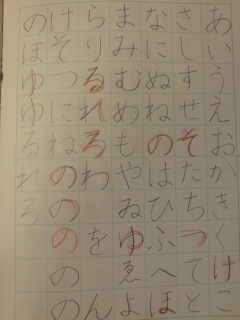 あいうえおかきくけこ
さしすせそたちつてと
なにぬねのはひふへほ
まみむめもやゐゆゑよ
らりるれろわをん
けそつにねののののの
のほゆゆるれろ